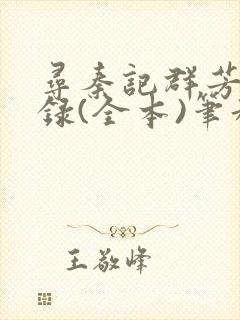 尋秦記群芳
録(全本)筆
王敬峰